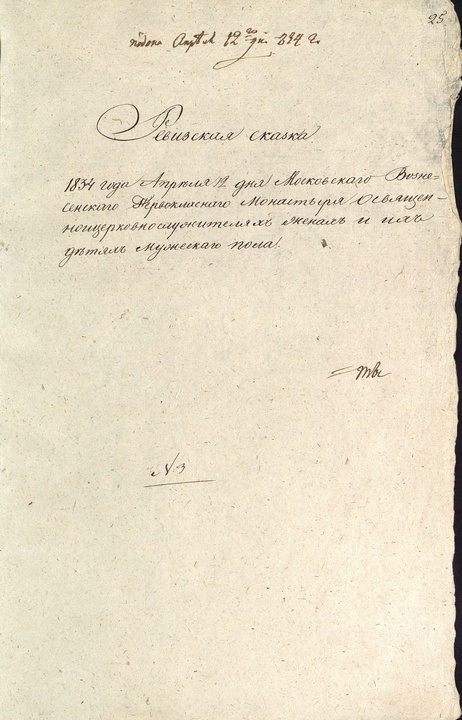 25
подана Апреля 12го дня 1834 г.
Ревизская сказка
1834 года Апреля 12 дня Московскаго Возне=
сенскаго Первокласнаго Монастыря Освящен-
ноицерковнослужителяхъ женахъ и ихъ
дѣтяхъ мужескаго пола.
№ 3